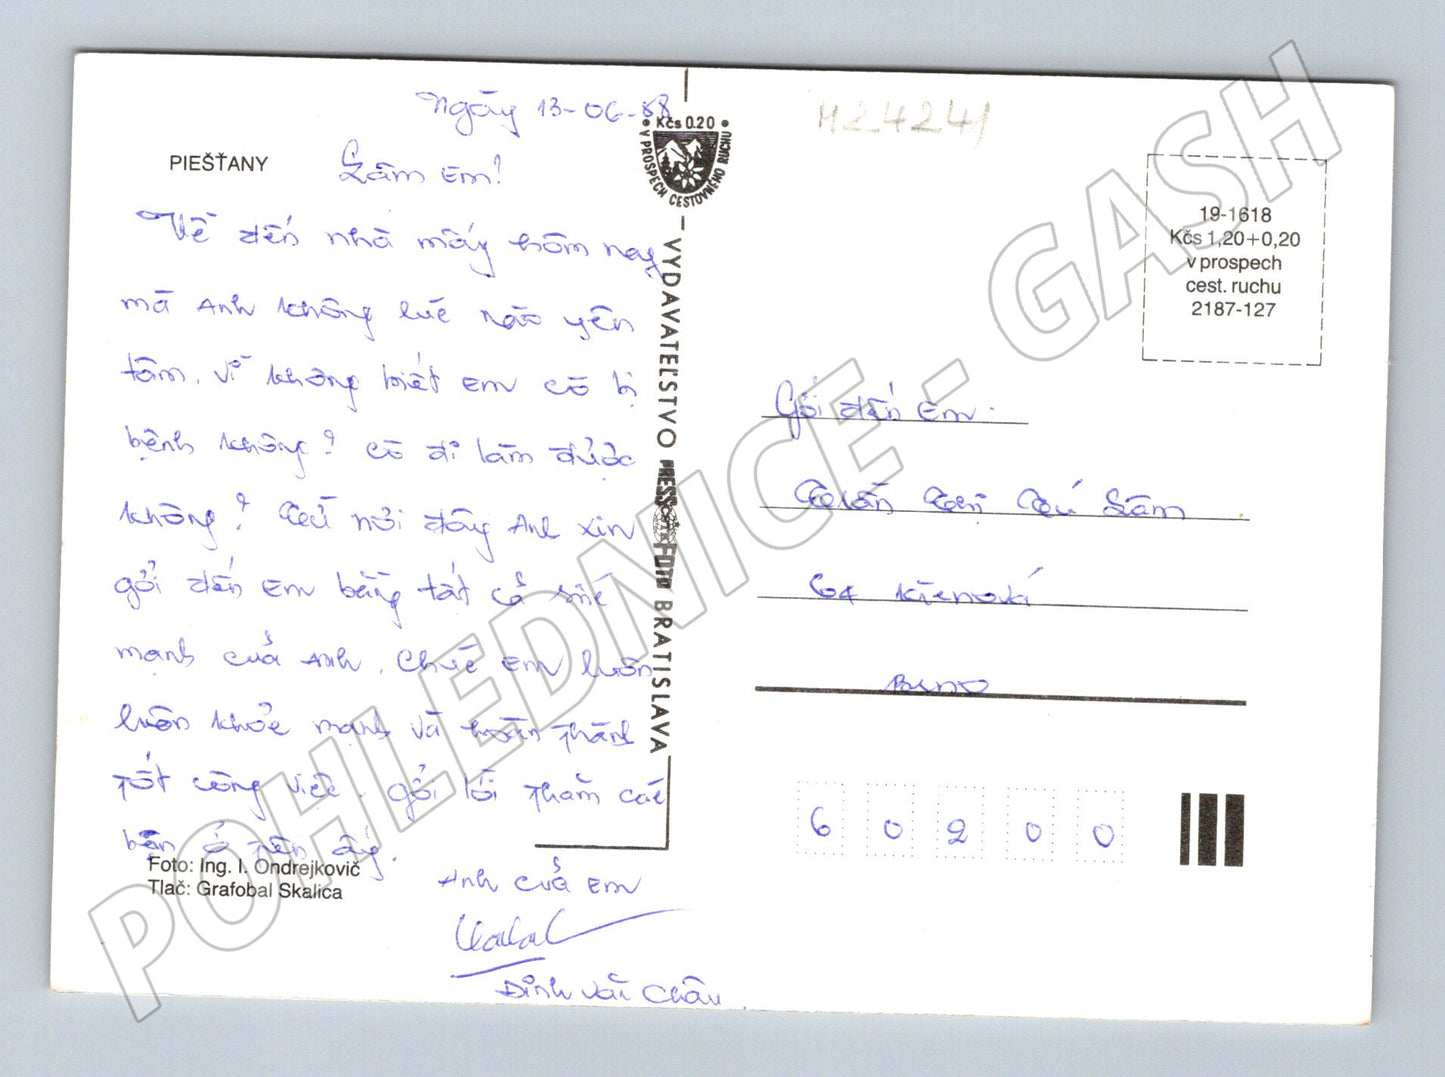 Ngày 13-06-88
PIEŠŤANY
Lâm Em!
Về đến nhà máy hôm nay
mà Anh không lúc nào yên
tâm. Vì không biết Em có bị
bệnh không? có đi làm được
không? Từ nơi đây Anh xin
gởi đến Em bằng tất cả sức
mạnh của Anh. Chúc Em luôn
luôn khỏe mạnh và hoàn thành
tốt công việc. gởi lời thăm các
bạn ở trên ấy.
Foto: Ing. I. Ondrejkovič
Tlač: Grafobal Skalica
Anh của Em
Đinh Văn Châu
• Kčs 0.20 •
V PROSPECH CESTOVNÉHO RUCHU
VYDAVATEĽSTVO PRESSFOTO BRATISLAVA
M24241
19-1618
Kčs 1,20+0,20
v prospech
cest. ruchu
2187-127
Gởi đến Em.
Trần Thị Tú Lâm
64 Křenová
Brno
60200
POHLEDNICE - GASH